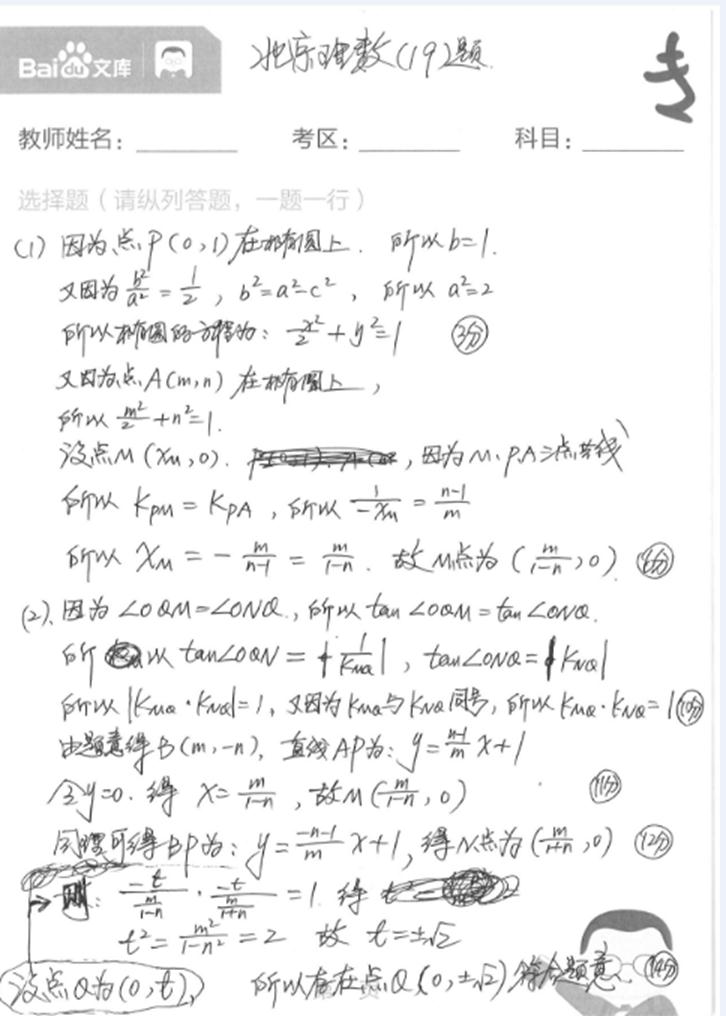 Baidu文库
北京理数(19)题.
教师姓名：
考区：
科目：
选择题（请纵列答题，一题一行）
(1) 因为点P(0,1)在椭圆上. 所以b=1.
又因为 b²/a² = 1/2, b²=a²-c², 所以 a²=2
所以椭圆的方程为: x²/2 + y²=1 (3分)
又因为点A(m,n)在椭圆上,
所以 m²/2 + n²=1.
设点M(x_M,0). , 因为M、P、A三点共线
所以 K_PM = K_PA, 所以 1/-x_M = n-1/m
所以 x_M = - m/n-1 = m/1-n. 故M点为(m/1-n,0)
(2). 因为∠OQM=∠ONQ, 所以 tan∠OQM = tan∠ONQ.
所以 tan∠OQN = |1/K_MQ|, tan∠ONQ=|K_NQ|
所以|K_MQ·K_NQ|=1, 又因为K_MQ与K_NQ同号, 所以 K_MQ·K_NQ=1 (10分)
由题意得B(m,-n), 直线AP为: y= n-1/m x+1
令y=0. 得 x= m/1-n, 故M(m/1-n,0) (11分)
同理可得BP为: y= -n-1/m x+1, 得N点为(m/1+n,0) (12分)
则: -t/(m/1-n) · -t/(m/1+n) =1. 得
t²= m²/1-n² =2 故 t=±√2
设点Q为(0,t), 所以存在点Q(0,±√2)符合题意. (14分)